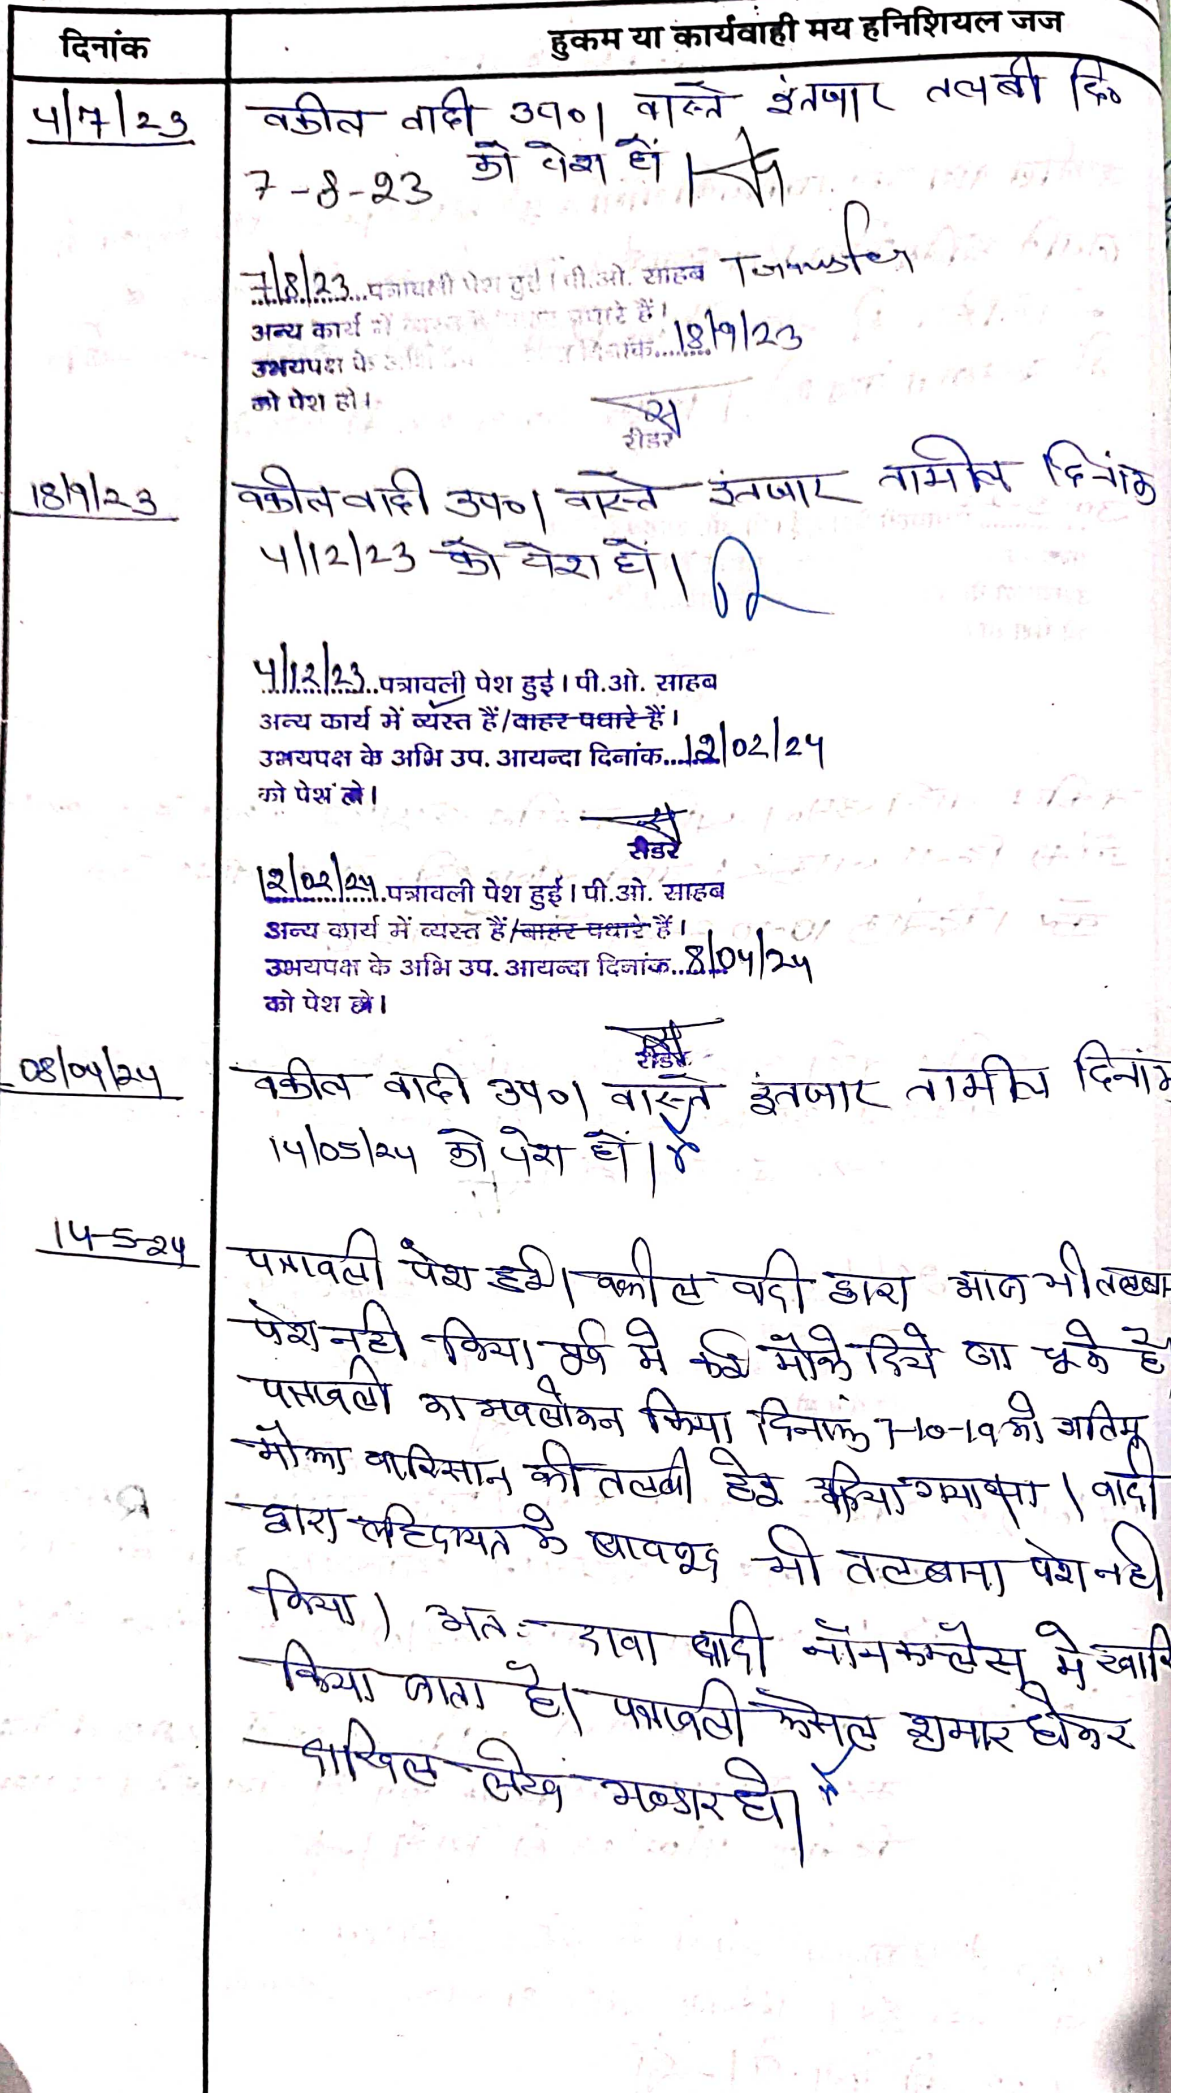 दिनांक
हुकम या कार्यवाही मय हनिशियल जज
4/7/23
वकील वादी उप०। वास्ते इंतजार तलबी दि०
7-8-23 को पेश हों।
7/8/23 पत्रावली पेश हुई। पी.ओ. साहब Transfer
अन्य कार्य में व्यस्त पधारे हैं।
उभयपक्ष के दिनांक 18/9/23
को पेश हो।
रीडर
18/9/23
वकील वादी उप०। वास्ते इंतजार तामील दिनांक
4/12/23 को पेश हों।
4/12/23 पत्रावली पेश हुई। पी.ओ. साहब
अन्य कार्य में व्यस्त हैं/बाहर पधारे हैं।
उभयपक्ष के अभि उप. आयन्दा दिनांक...12/02/24
को पेश हो।
रीडर
12/02/24 पत्रावली पेश हुई। पी.ओ. साहब
अन्य कार्य में व्यस्त हैं/बाहर पधारे हैं।
उभयपक्ष के अभि उप. आयन्दा दिनांक..8/04/24
को पेश हो।
रीडर
08/04/24
वकील वादी उप०। वास्ते इंतजार तामील दिनांक
14/05/24 को पेश हों।
14-5-24
पत्रावली पेश हुई। वकील वादी द्वारा आज भी तलबा
पेश नही किया। पूर्व मे कई मौके दिये जा चूके है
पत्रावली का अवलोकन किया दिनांक 7-10-19 को अंतिम
मौका वारिसान की तलबी हेतु दिया गया था। वादी
द्वारा हिदायत के बावजूद भी तलबाना पेश नही
किया। अतः दावा वादी नॉन कम्प्लेंस मे खारि
किया जाता है। पत्रावली फैसल शुमार होकर
दाखिल लेख भण्डार हो।